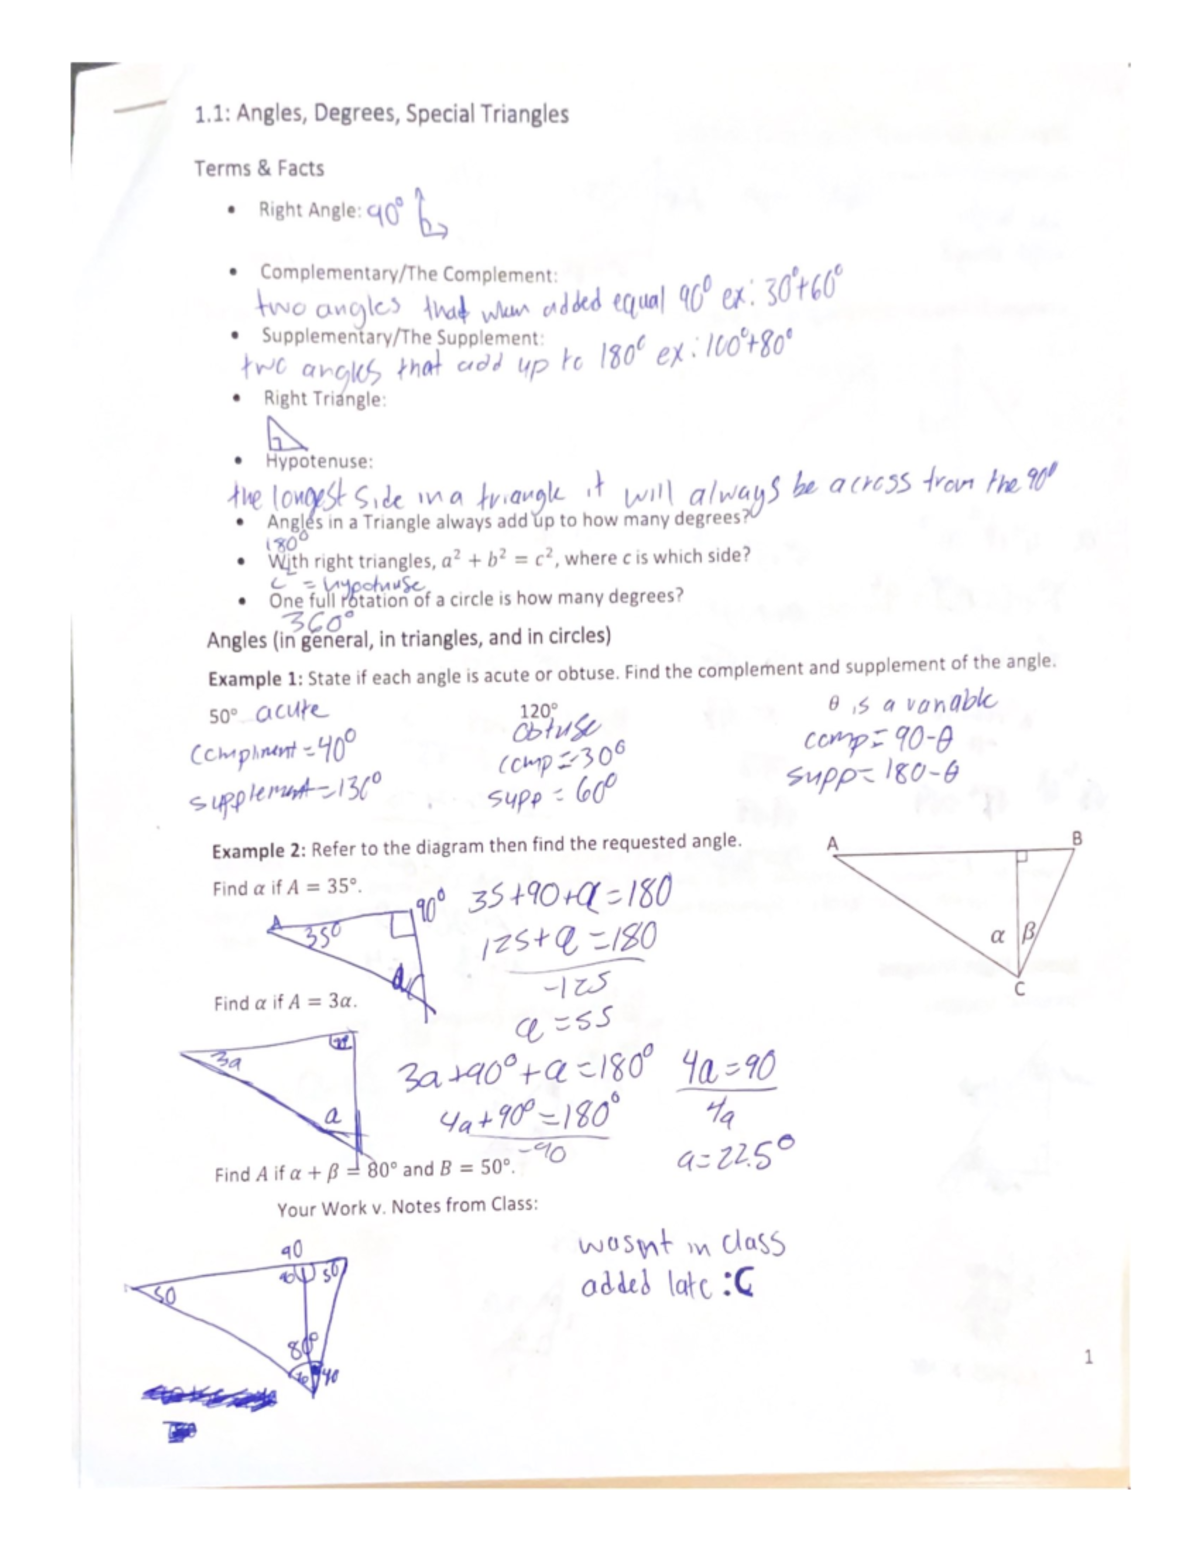 1.1: Angles, Degrees, Special Triangles
Terms & Facts
• Right Angle: 90°
• Complementary/The Complement:
two angles that when added equal 90° ex: 30°+60°
• Supplementary/The Supplement:
two angles that add up to 180° ex: 100°+80°
• Right Triangle:
• Hypotenuse:
the longest side in a triangle it will always be across from the 90°
• Angles in a Triangle always add up to how many degrees?
180°
• With right triangles, a² + b² = c², where c is which side?
c = hypotnuse
• One full rotation of a circle is how many degrees?
360°
Angles (in general, in triangles, and in circles)
Example 1: State if each angle is acute or obtuse. Find the complement and supplement of the angle.
50° acute 120° θ is a variable
obtuse
compliment = 40° comp = -30° comp = 90-θ
supplement = 130° supp = 60° supp = 180-θ
Example 2: Refer to the diagram then find the requested angle.
A B
Find α if A = 35°.
A 35° 90° 35+90+a=180
125+a=180
α β
-125
C
Find α if A = 3α.
a=55
3a 3a+90°+a=180° 4a=90
a 4a+90°=180° 4a
-90 a=22.5°
Find A if α + β = 80° and B = 50°.
Your Work v. Notes from Class:
90 wasnt in class
50 50 added late :C
80°
40
1